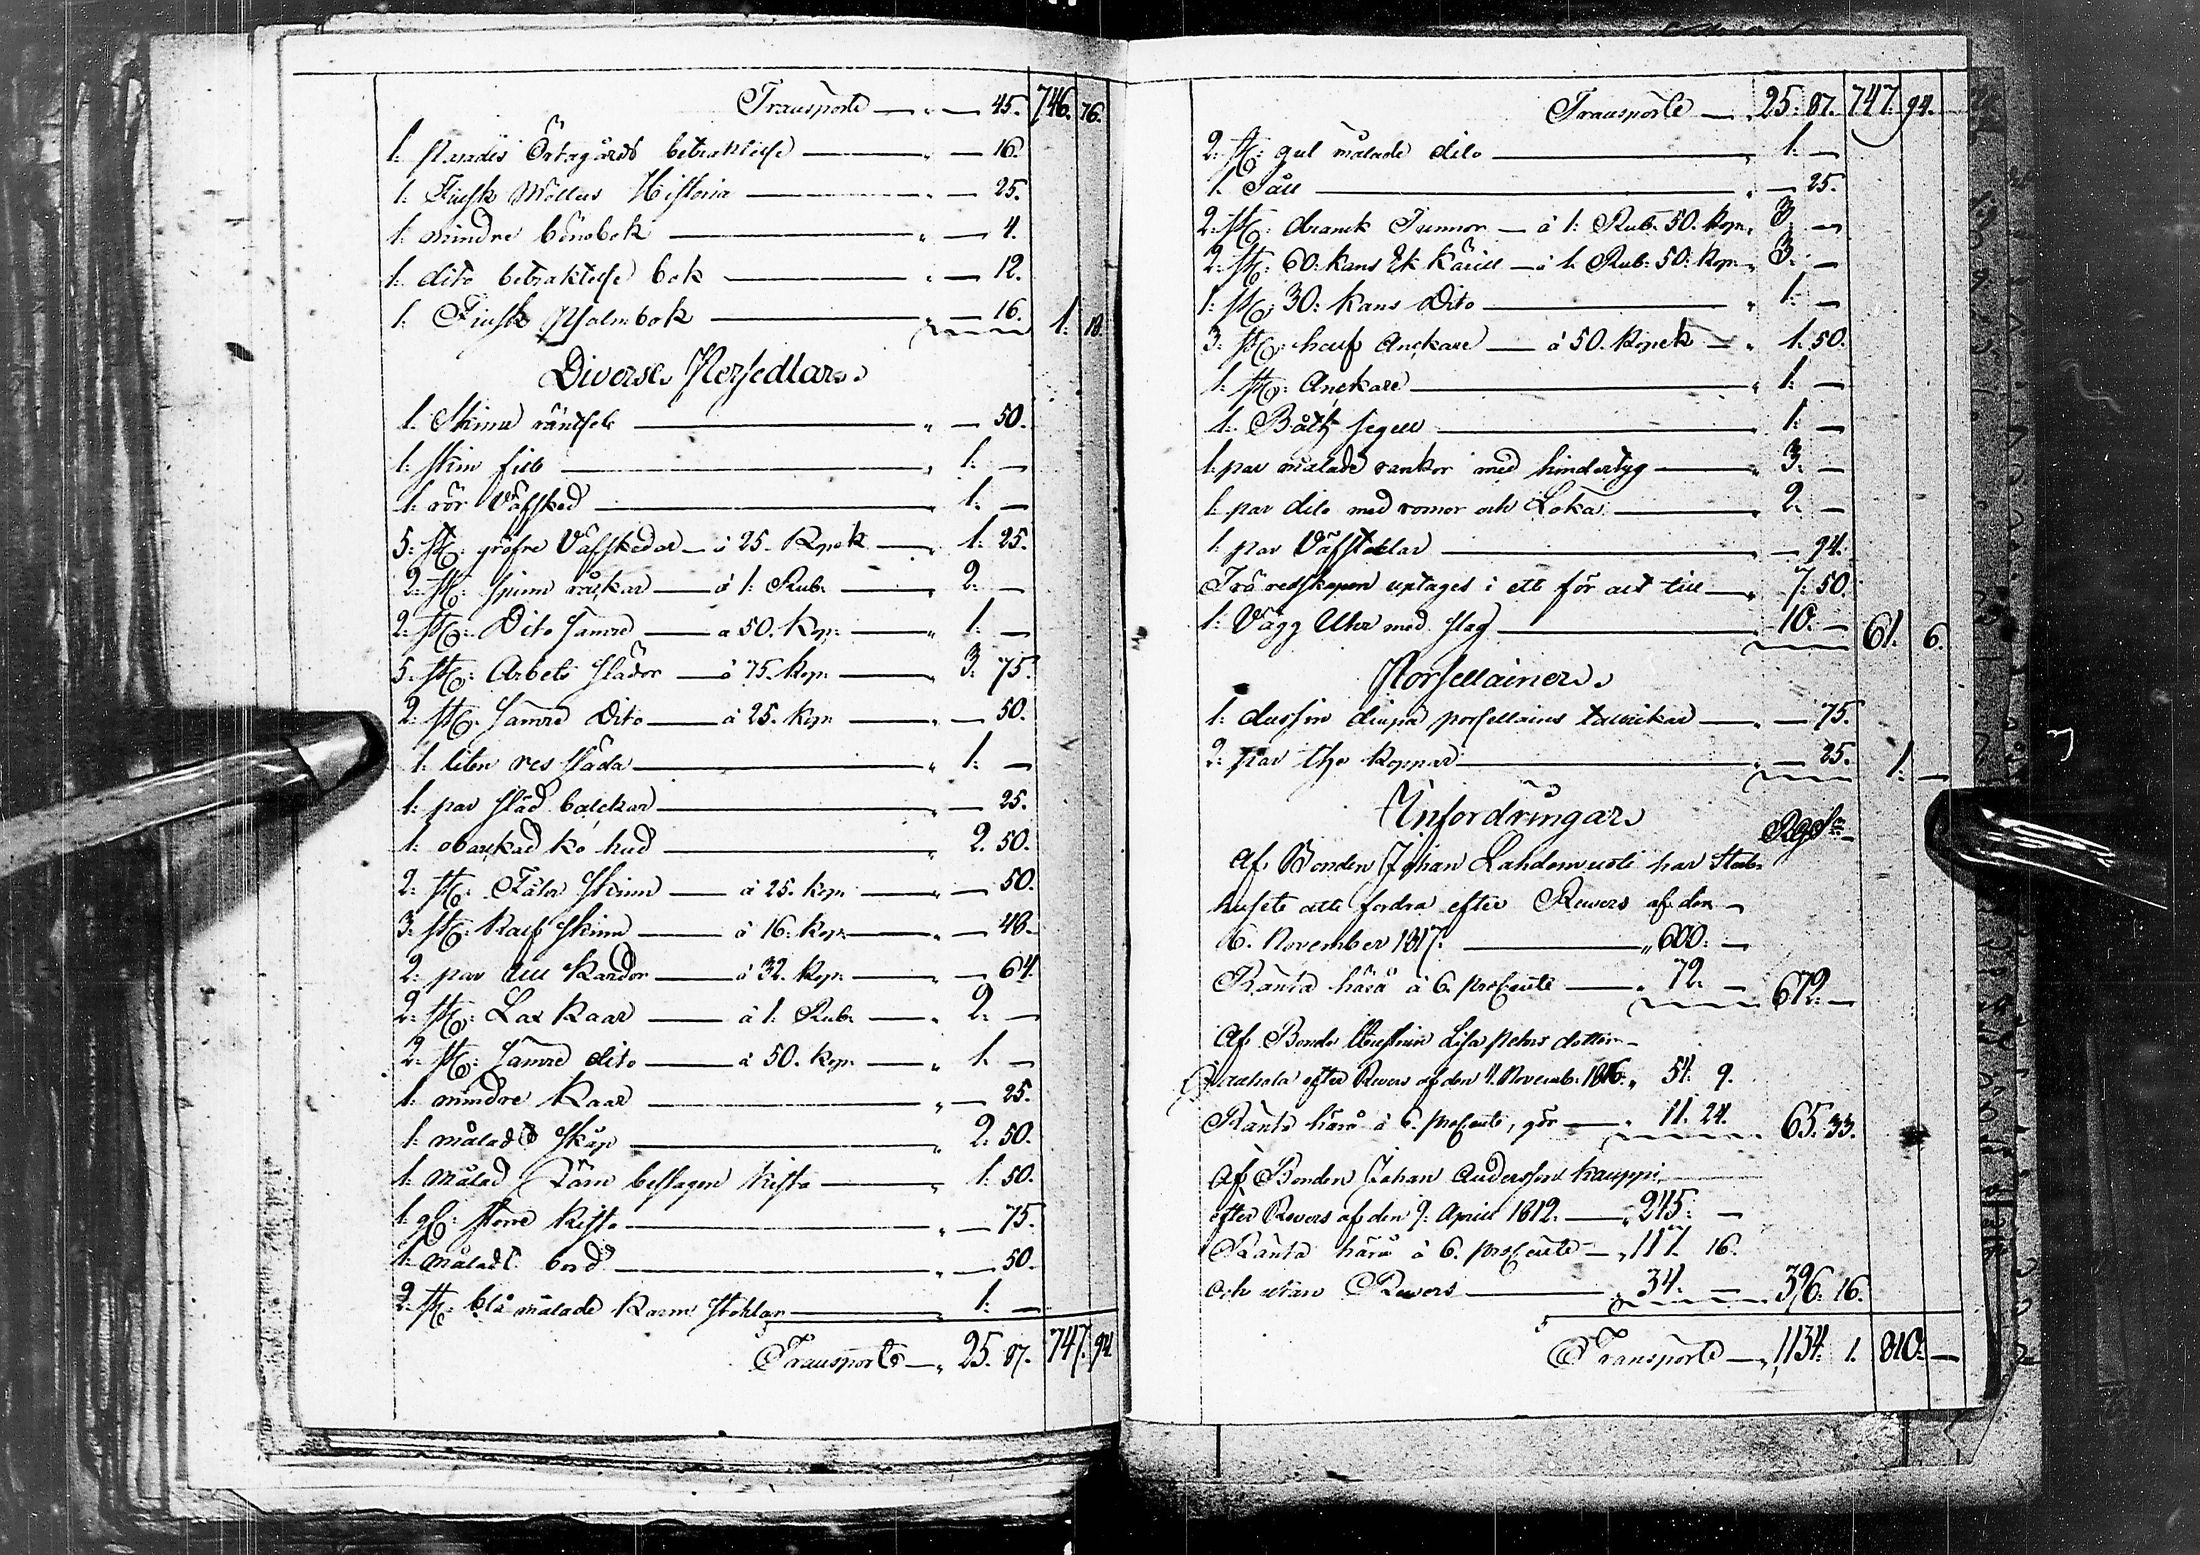 Transporte — " — 45. 746. 76.
1: Paradis Örtagårds betraktelse — " — 16.
1: Finsk Möllers Historia — " — 25.
1: mindre bönebok — " — 4.
1: dito betraktelse bok — " — 12.
1: Finsk Psalmbok — " — 16. 1. 18.
Diverse Persedlar
1: Skinn räntsel — " — 50.
1: skin fäll — " 1: —
1: rör Väfsked — " 1: —
5: st: gröfre Väfskedar — à 25. Kopek — " 1: 25.
2: st: spinn råckar — à 1: Rub: — " 2: —
2: st: Dito sämre — à 50. Kop: — " 1: —
5: st: Arbets slädor — à 75. Kop: — " 3: 75.
2: st: sämre Dito — à 25. Kop: — " — 50.
1: liten res släda — " 1: —
1: par släd balckar — " — 25.
1: obarkad ko hud — " 2. 50.
2: st: Fåla skinn — à 25. kop: — " — 50.
3: st: Kalf skinn — à 16. Kop: — " — 48.
2: par Ull Kardor — à 32. Kop: — " — 64.
2: st: Lax Kaar — à 1: Rub: — " 2: —
2: st: sämre dito — à 50. kop: — " 1. —
1: mindre Kaar — " — 25.
1: måladt skåp — " 2: 50.
1: målad Järn beslagen kista — " 1: 50.
1: gl: större kista — " — 75.
1: måladt bord — " — 50.
2: st: blå målade Karm stohlar — " 1: —
Transporte — " 25. 87. 747. 94.
Transporte — " 25: 87. 747. 94.
2: st: gul målade dito — " 1: —
1: Såll — " — 25.
2: st: dranck Tunnor — à 1: Rub: 50. kop: " 3. —
2: st: 60: kans Ek Kärill — à 1: Rub: 50: Kop: " 3: —
1: st: 30: kans Dito — " 1: —
3: st: half Anckare — à 50. Kopek — " 1: 50.
1: st: Anckare — " 1: —
1: Båth segell — " 1: —
1: par målade rankor med hindertyg — " 3: —
1: par dito med romor och Loka — " 2: —
1: par Väfstolar — " — 94.
Trä redskapen uptages i ett för alt till — " 7: 50.
1: Vägg Uhr med slag — " 10. — 61. 6.
Porsellainer
1: dussin diupa porsellains tallrikar — " — 75.
2: par the koppar — " — 25. 1: —
Utfordringar
Rgds
Af Bonden Johan Lahdenuoti har Sterb-
husete att fordra efter Revers af den —
6. November 1817. — " 600: —
Ränta härå à 6. proCente — " 72. — 672: —
Af Bonde Enkan Lisa Peters dotter —
efter Revers af den 4. Novemb: 1816: " 54: 9.
Ränta härå à 6. proCente, gör — " 11. 24. 65. 33.
Af Bonden Johan Andersson Kauppi —
efter Revers af den 9: April 1812. — " 245: —
Ränta härå à 6. proCente — " 117. 16.
och utan Revers — " 34. — 396. 16.
Transporte — " 1134. 1. 810. —